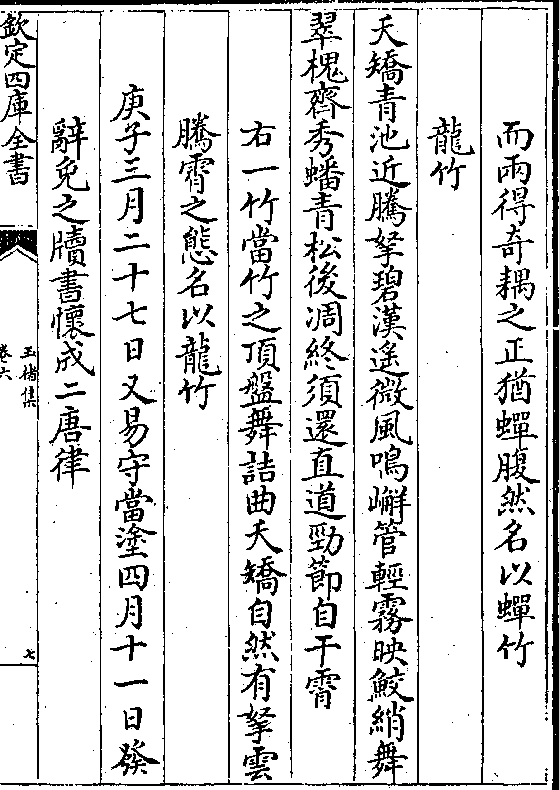 而兩得奇耦之正猶蟬腹然名以蟬竹
龍竹
夭矯青池近騰拏碧漢遥微風鳴嶰管輕霧映鮫綃舞
翠槐齊秀蟠青松後凋終須還直道勁節自干霄
右一竹當竹之頂盤舞詰曲夭矯自然有拏雲
騰霄之態名以龍竹
庚子三月二十七日又易守當塗四月十一日發
辭免之牘書懷成二唐律
欽定四庫全書
卷六
七